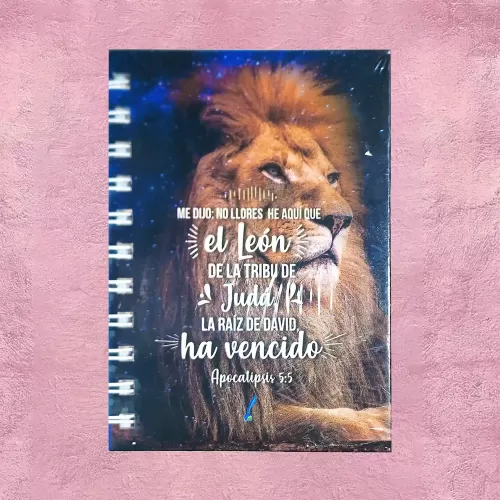 ME DIJO; NO LLORES HE AQUÍ QUE
el León
DE LA TRIBU DE
Judá,
LA RAÍZ DE DAVID,
ha vencido
Apocalipsis 5:5